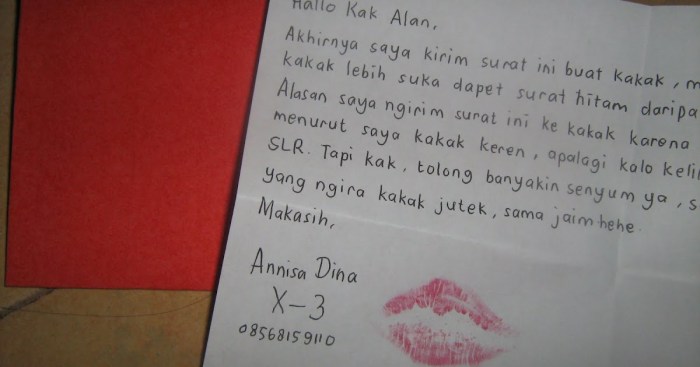 Hallo Kak Alan,
Akhirnya saya kirim surat ini buat kakak,
kakak lebih suka dapet surat hitam daripa
Alasan saya ngirim surat ini ke kakak karena
menurut saya kakak keren, apalagi kalo kelin
SLR. Tapi kak, tolong banyakin senyum ya, s
yang ngira kakak jutek, sama jaim hehe.
Makasih,
Annisa Dina
X-3
08568159110